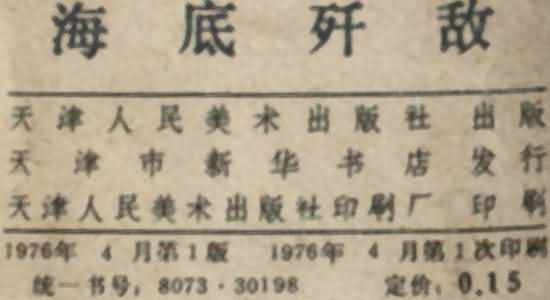 海底歼敌
天津人民美术出版社 出版
天津市新华书店发行
天津人民美术出版社印刷厂 印刷
1976年 4 月第1版 1976年 4 月第1次印刷
统一书号：8073·30198 定价：0.15